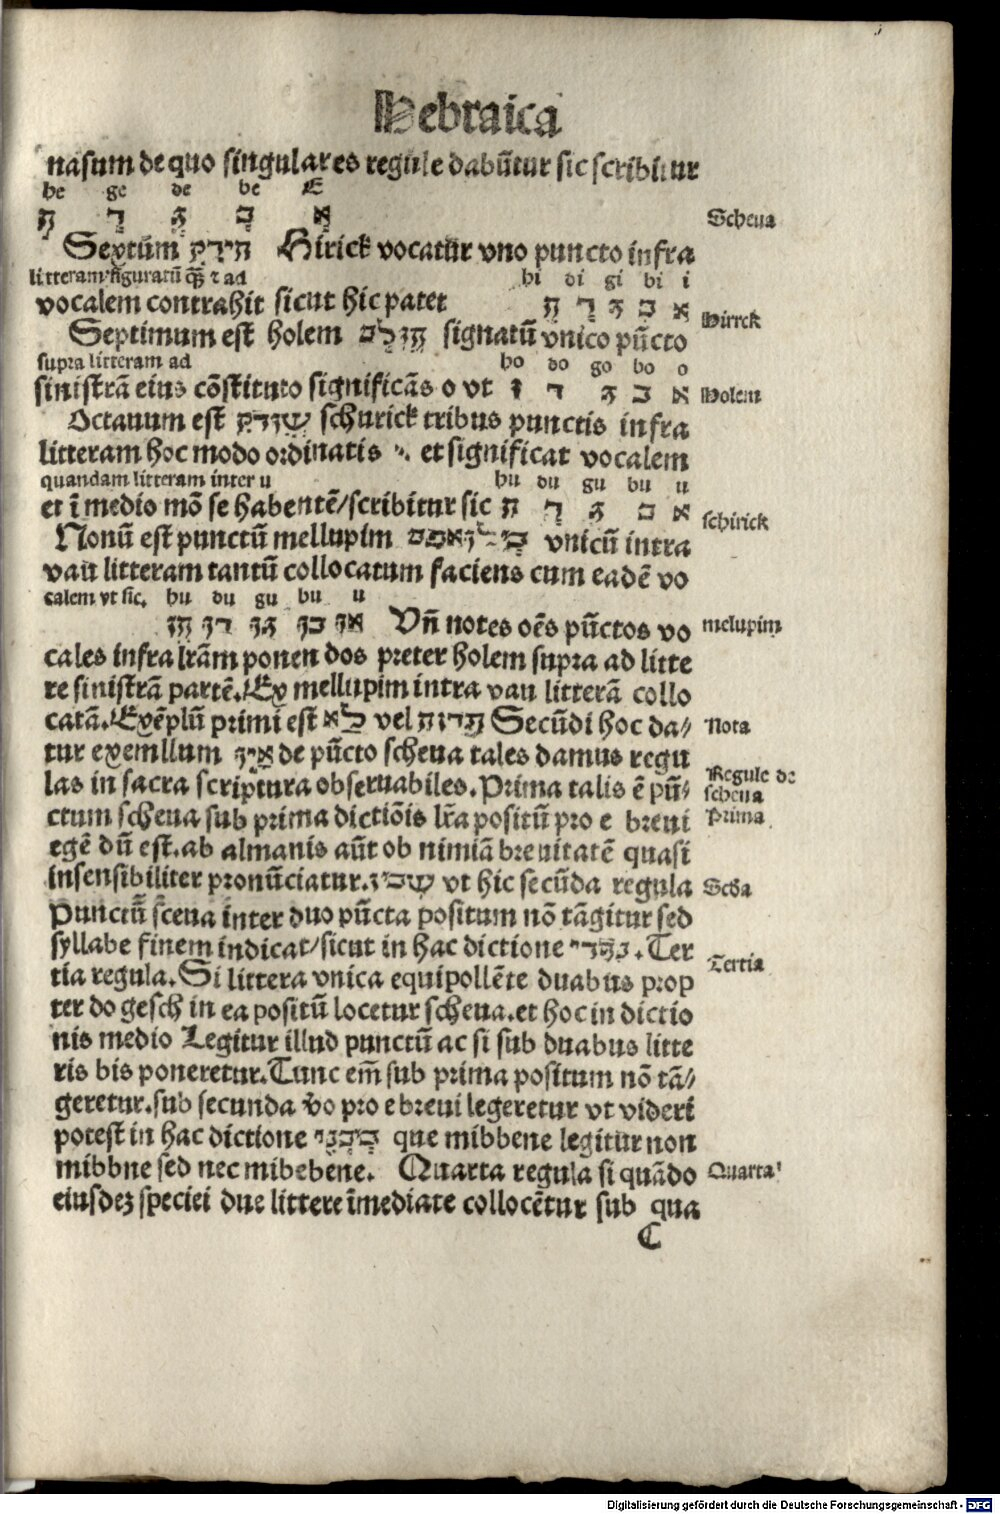 Hebraica
nasum de quo singulares regule dabūtur sic scribitur
he ge de be E
Scheua
Septum חירק Hirick vocatur vno puncto infra
litteram figuratū q̄ꝫ ⁊ ad hi di gi bi i
vocalem contrahit sicut hic patet ה ד ג ב א
Hirrck
Septimum est holem חולם signatū vnico pūcto
supra litteram ad ho do go bo o
sinistrā eius cōstituto significās o vt
Holem
Octauum est שורק schurick tribus punctis infra
litteram hoc modo ordinatis et significat vocalem
quandam litteram inter u hu du gu bu u
et ī medio mō se habentē/scribitur sic ה ד ג ב א
schirick
Nonū est punctū mellupim vnicū intra
vau litteram tantū collocatum faciens cum eadē vo
calem vt sic. hu du gu bu u
הו דו גו בו או Vn̄ notes oēs pūctos vo
melupim
cales infra lr̄am ponen dos preter holem supra ad litte
re sinistrā partē. Ex mellupim intra vau litterā collo
catā. Exēplū primi est לא vel Secūdi hoc da/
Nota
tur exemllum de pūcto scheua tales damus regu
las in sacra scriptura obseruabiles. Prima talis ē pū/
Regule de
scheua
ctum scheua sub prima dictiōis lr̄a positū pro e breui
Prima
egē dū est. ab almanis aūt ob nimiā breuitatē quasi
insensibiliter pronūciatur. vt hic secūda regula
Scda
Punctū sceua inter duo pūcta positum nō tāgitur sed
syllabe finem indicat/sicut in hac dictione . Ter
tia regula. Si littera vnica equipollēte duabus prop
Tertia
ter do gesch in ea positū locetur scheua. et hoc in dictio
nis medio Legitur illud punctū ac si sub duabus litte
ris bis poneretur. Tunc em̄ sub prima positum nō tā/
geretur. sub secunda vo pro e breui legeretur vt videri
potest in hac dictione que mibbene legitur non
mibbne sed nec mibebene. Quarta regula si quādo
Quarta
eiusdeꝫ speciei due littere īmediate collocētur sub qua
C
Digitalisierung gefördert durch die Deutsche Forschungsgemeinschaft - DFG